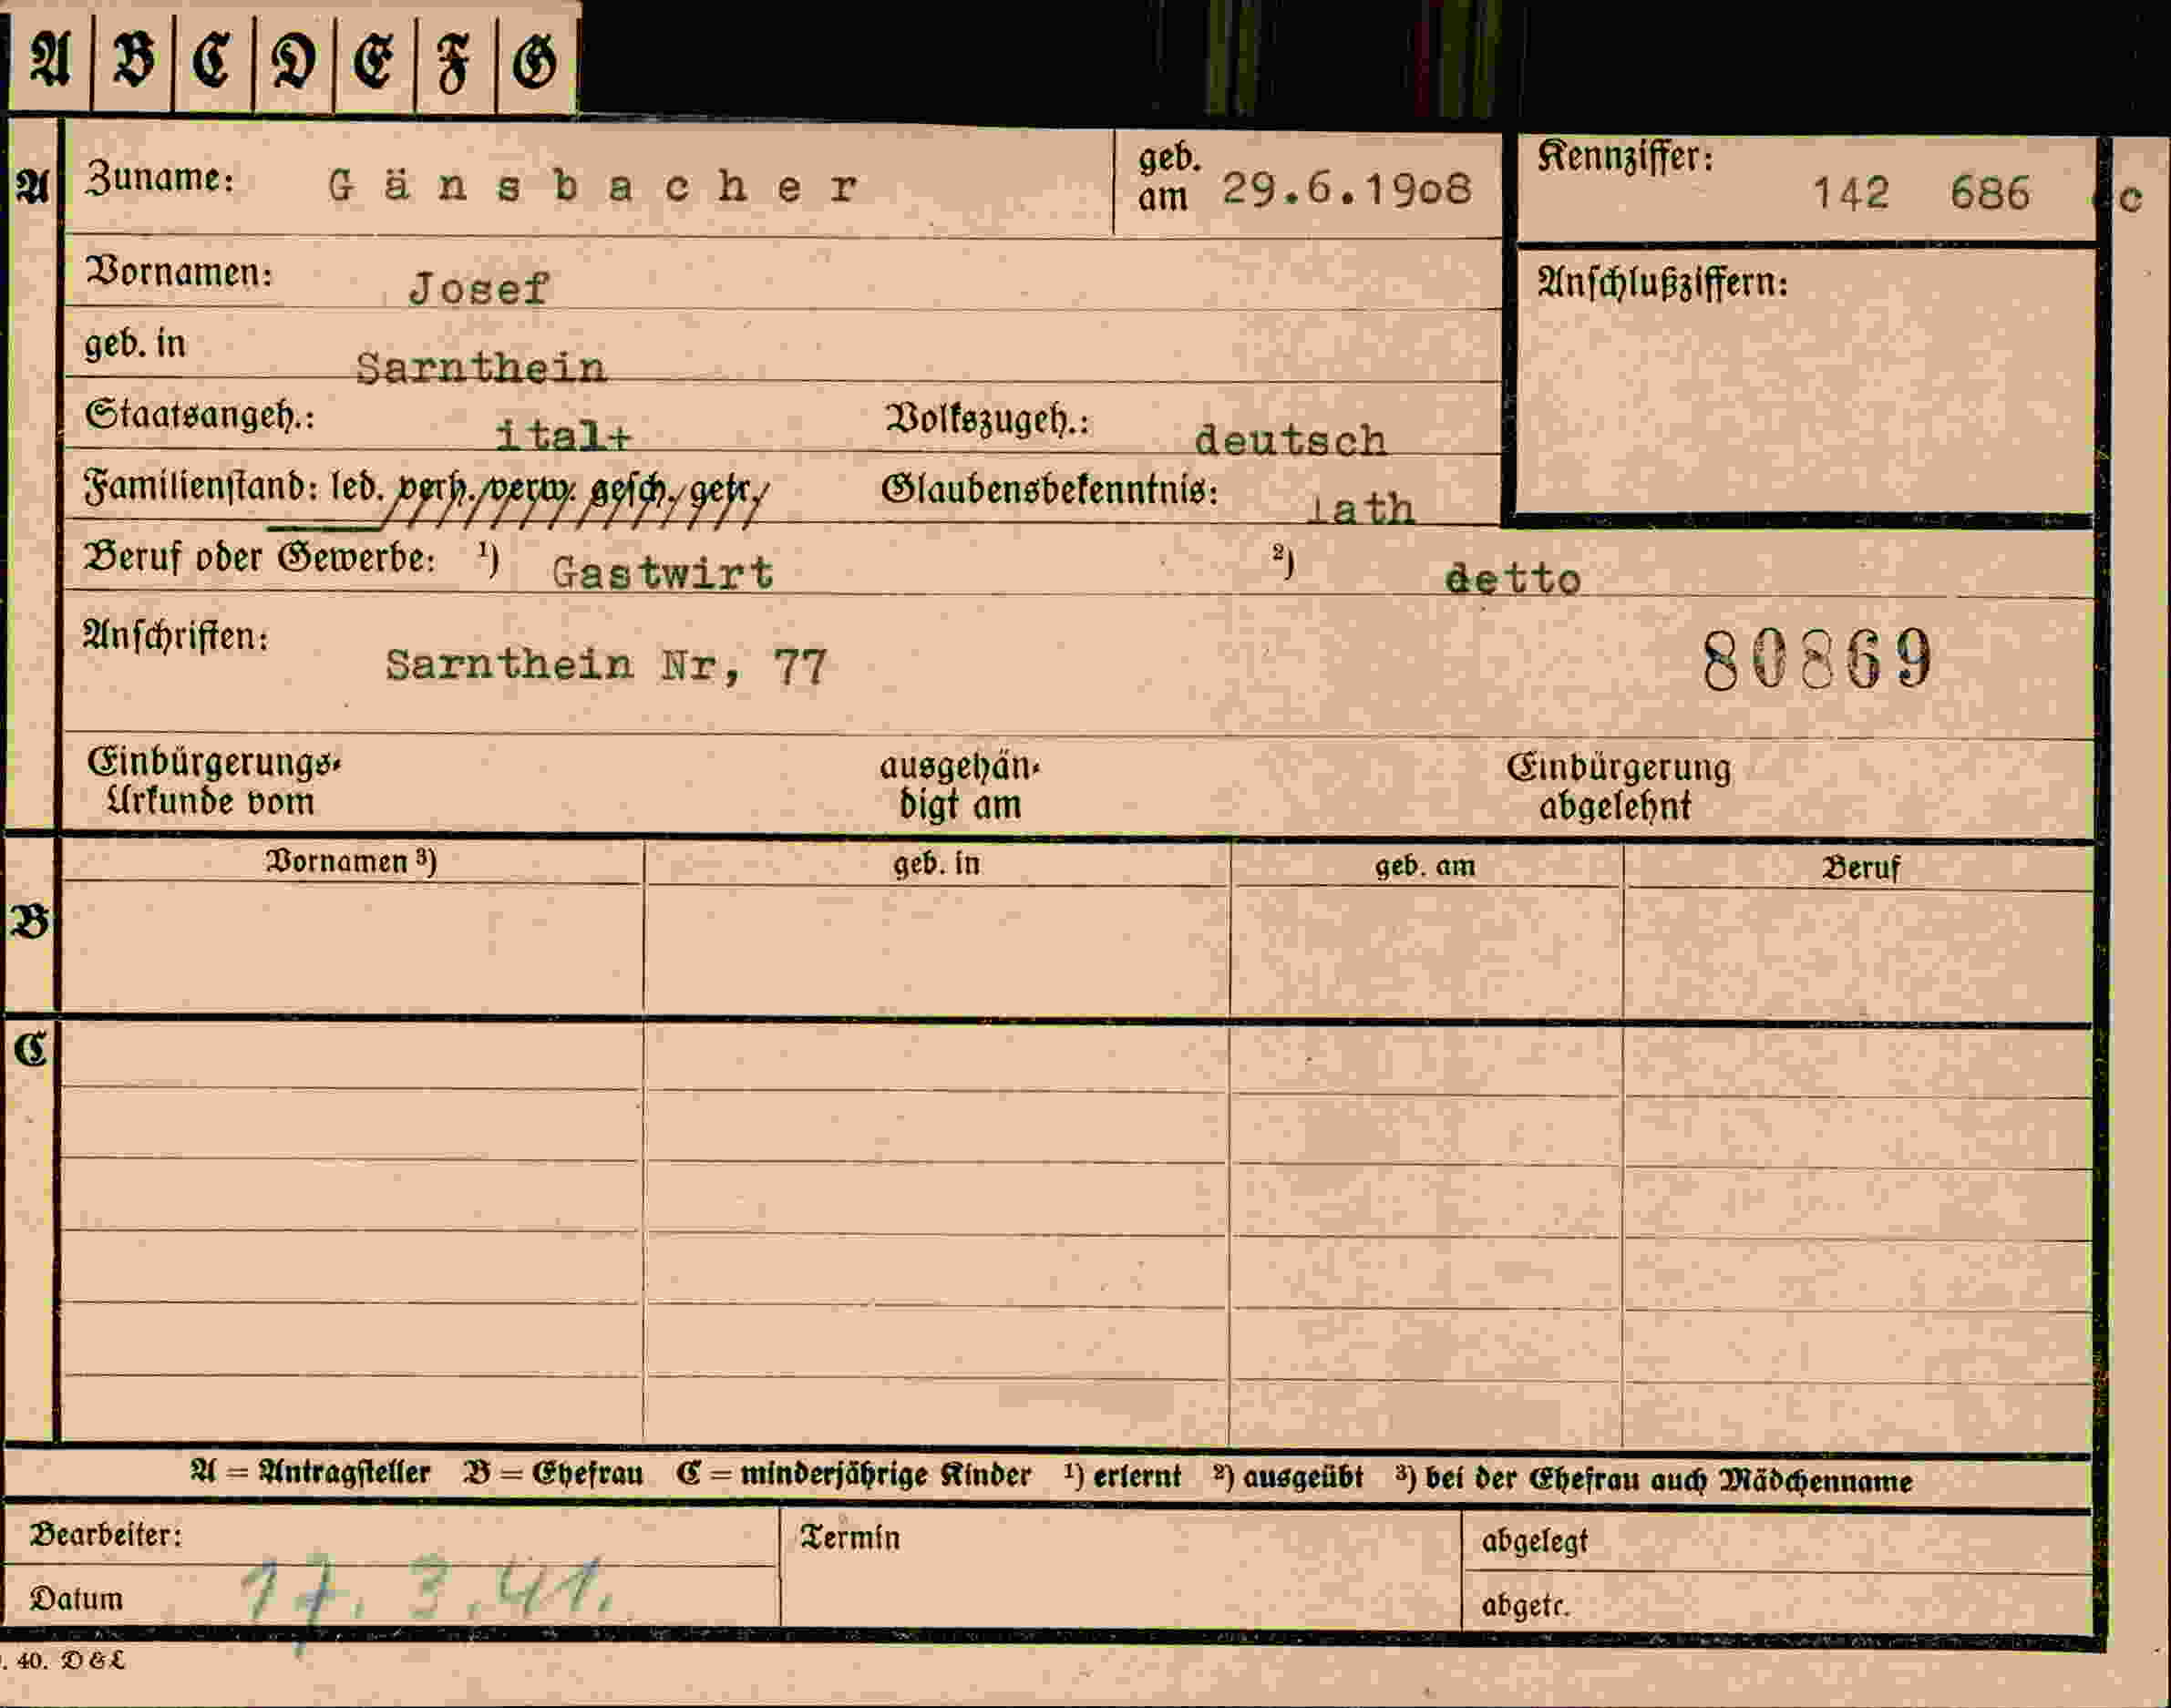 A B C D E F G
A Zuname: Gänsbacher geb. am 29.6.1908 Kennziffer: 142 686 c
Vornamen: Josef Anschlußziffern:
geb. in Sarnthein
Staatsangeh.: ital+ Volkszugeh.: deutsch
Familienstand: led. verh./verw. gesch./getr. Glaubensbekenntnis:
Beruf oder Gewerbe: ¹) Gastwirt ²) detto
Anschriften: Sarnthein Nr, 77 80869
Einbürgerungs- ausgehän- Einbürgerung
Urkunde vom digt am abgelehnt
Vornamen ³) geb. in geb. am Beruf
B
C
A = Antragsteller B = Ehefrau C = minderjährige Kinder ¹) erlernt ²) ausgeübt ³) bei der Ehefrau auch Mädchenname
Bearbeiter: Termin abgelegt
Datum 17.3.41. abgetr.
. 40. D & L